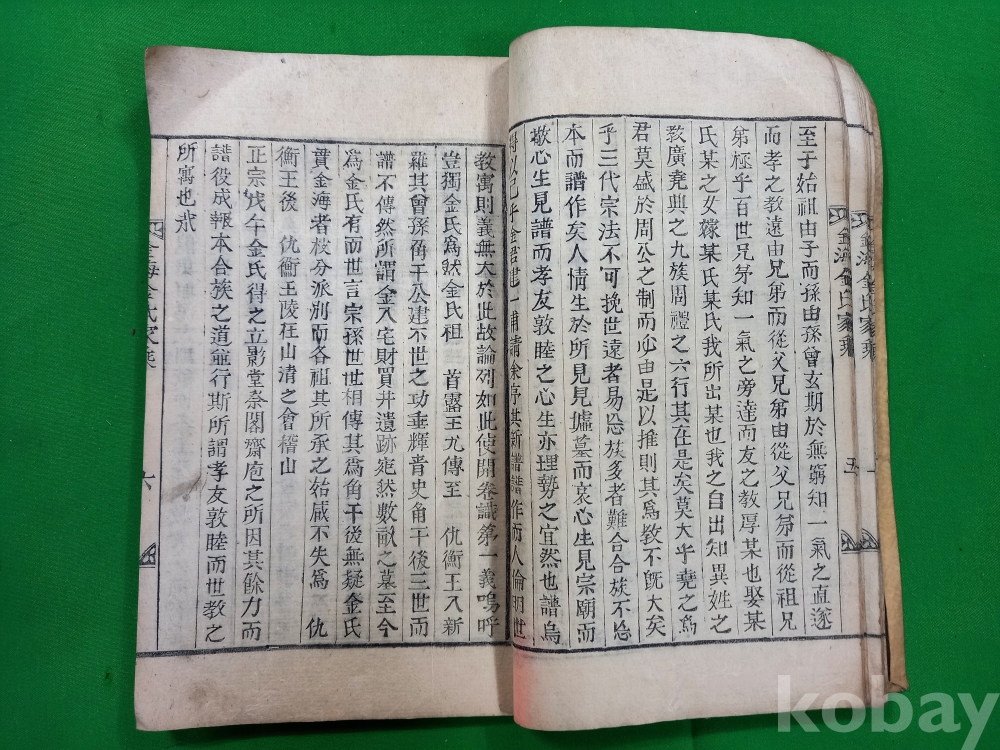 至于始祖由子而孫由孫曾玄期於無窮知一氣之直遂
而孝之教遠由兄弟而從父兄弟由從父兄弟而從祖兄
弟極乎百世兄弟知一氣之旁達而友之教厚某也娶某
氏某之女嫁某氏某氏我所出某也我之自出知異姓之
教廣堯典之九族周禮之六行其在是矣莫大乎堯之爲
君莫盛於周公之制而必由是以推則其爲教不旣大矣
乎三代宗法不可挽世遠者易忘族多者難合合族不忘
本而譜作矣人情生於所見見墟墓而哀心生見宗廟而
敬心生見譜而孝友敦睦之心生亦理勢之宜然也譜烏
得以已乎金君建一甫請余序其新譜譜作而人倫明世
教寓則義無大於此故論列如此使開卷識第一義嗚呼
豈獨金氏爲然金氏祖 首露王尤傳至 仇衡王入新
羅其曾孫角干公建不世之功垂輝靑史角干後三世而
譜不傳然所謂金入宅財買井遺跡宛然數畝之墓至今
爲金氏有而世言宗孫世世相傳其爲角干後無疑金氏
貫金海者枝分派別而各祖其所承之始咸不失爲 仇
衡王後 仇衡王陵在山淸之會稽山
正宗戊午金氏得之立影堂奈閣齋庖之所因其餘力而
譜役成報本合族之道並行斯所謂孝友敦睦而世教之
所寓也戒
金海金氏家乘
五
金海金氏家乘
六
kobay